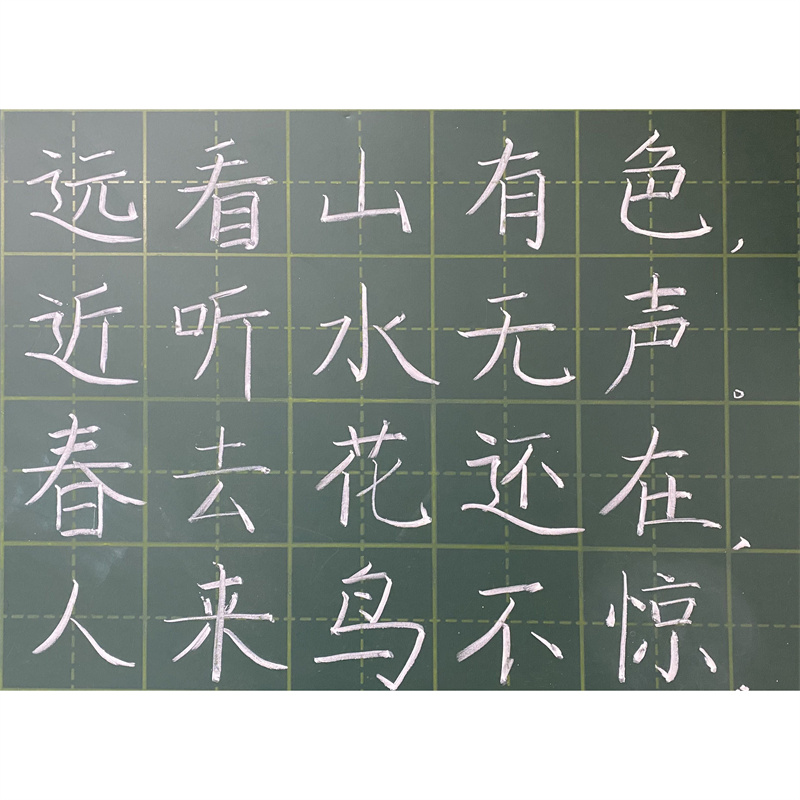 远看山有色，
近听水无声。
春去花还在，
人来鸟不惊